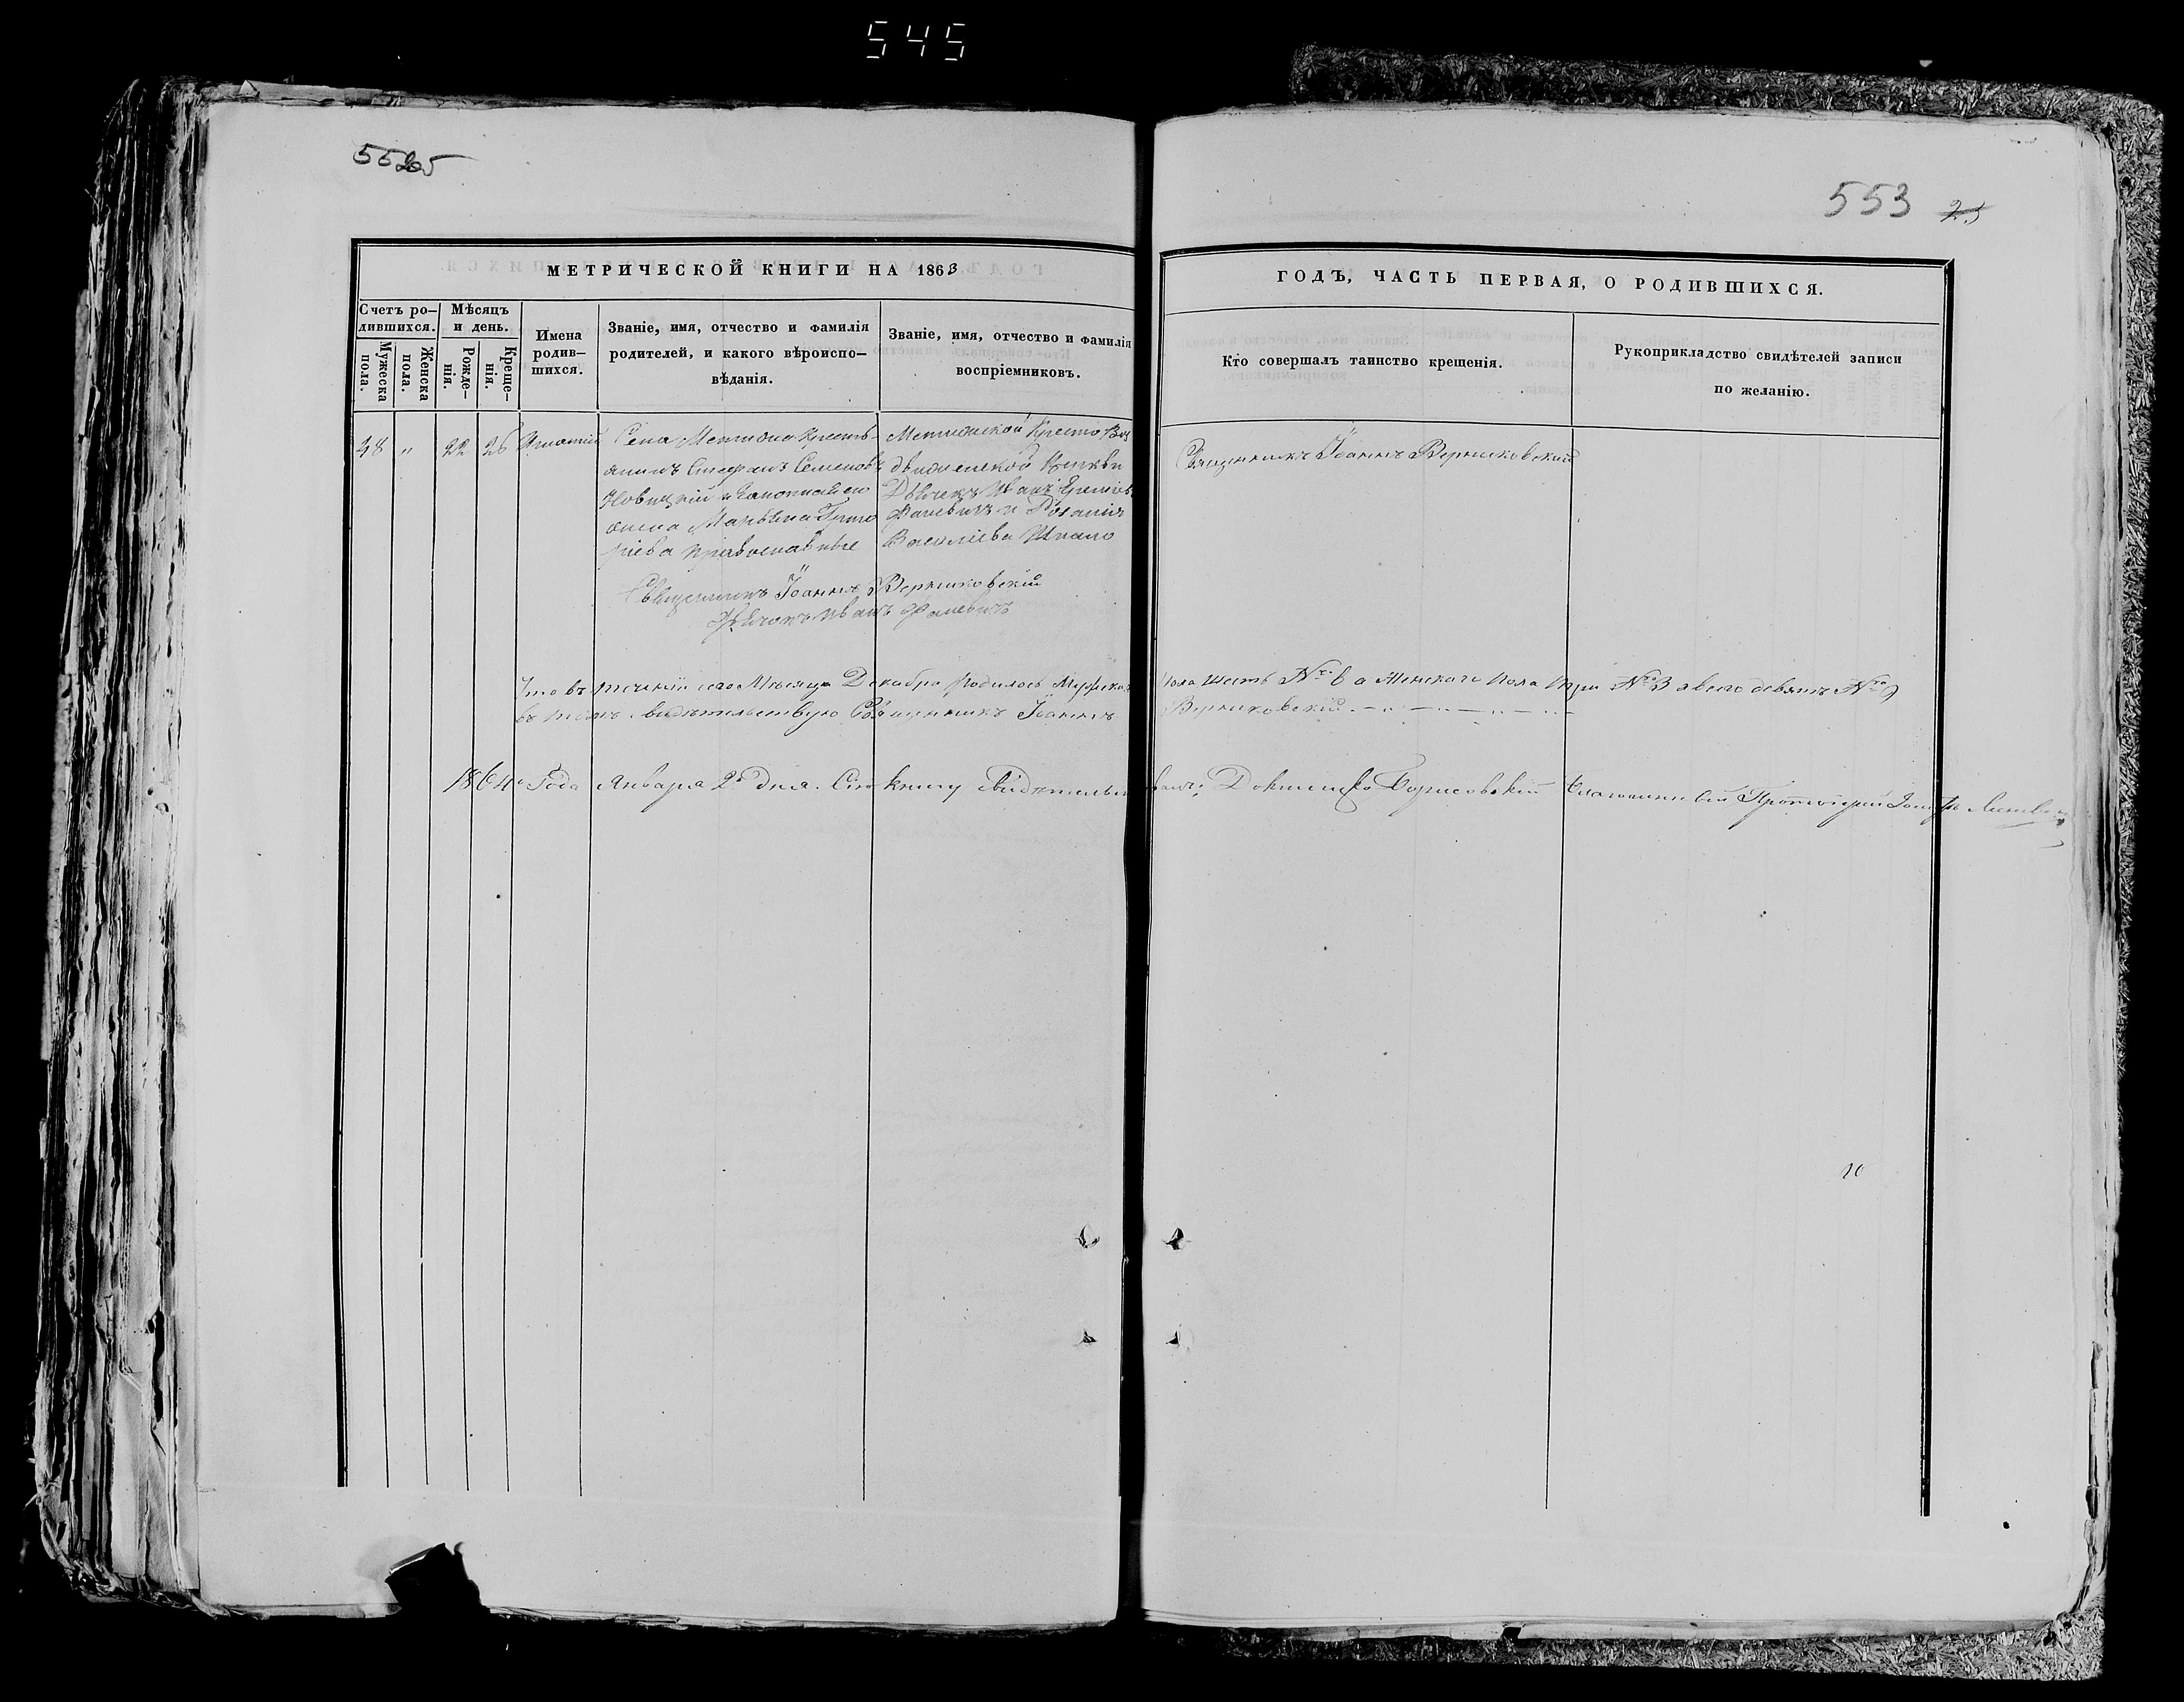 545
553
25
МЕТРИЧЕСКОЙ КНИГИ НА 1863
ГОДЪ, ЧАСТЬ ПЕРВАЯ, О РОДИВШИХСЯ.
Счетъ ро-
дившихся.
Мужеска
пола.
Женска
пола.
Мѣсяцъ
и день.
Рожде-
нія.
Креще-
нія.
Имена
родив-
шихся.
Званіе, имя, отчество и фамилія
родителей, и какого вѣроиспо-
вѣданія.
Званіе, имя, отчество и фамилія
воспріемниковъ.
Кто совершалъ таинство крещенія.
Рукоприкладство свидѣтелей записи
по желанію.
38 " 22 26 Игнатій
Села Мстижа Кресть-
янинъ Стефанъ Семеновъ
Новицкій и законная его
жена Марьяна Григо
ріева православные
Мстижской Кресто Воз
движенской Церкви
Дьячекъ Иванъ
Фалевичъ и
Василіева
Священникъ Іоаннъ Верниковскій
Священникъ Іоаннъ Верниковскій
Дьячокъ Иванъ Фалевичъ
Что въ теченіи сего Мѣсяца Декабря родилось Мужеска Пола шесть № 6 а Женскаго Пола три № 3 а всего девять № 9
въ томъ свидѣтельствую Священникъ Іоаннъ Верниковскій
1864 Года Января 2 Дня. Сію книгу Свидѣтельствовалъ: Борисовскій Благочинный Протоіерей